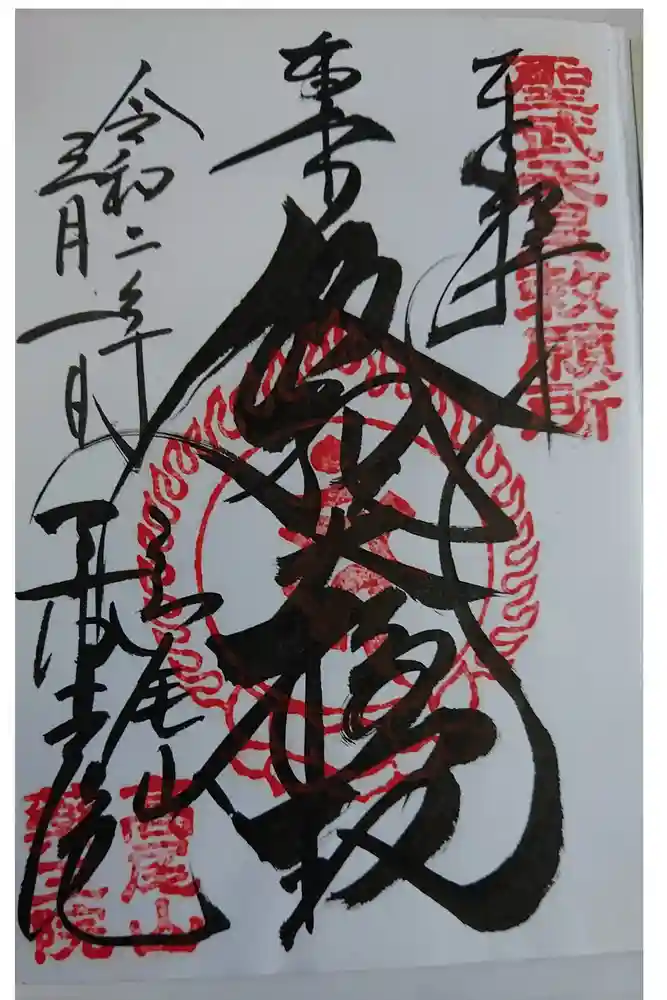 聖武天皇勅願所
奉拝
飯縄大権現
令和二年
月一日
高尾山
薬王院
高尾山
薬王院